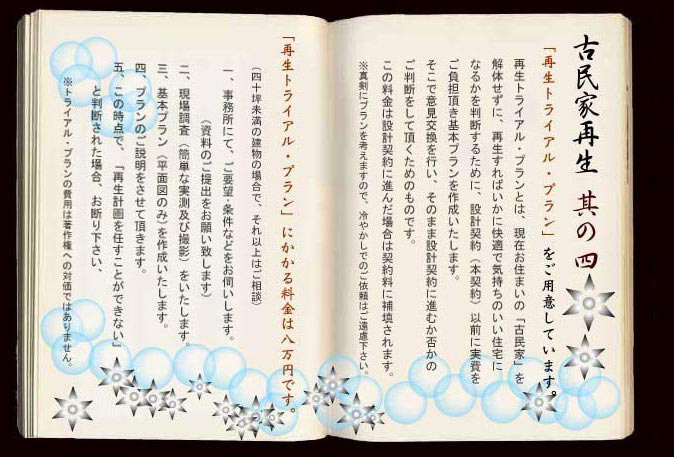 古民家再生 其の四
「再生トライアル・プラン」をご用意しています。
再生トライアル・プランとは、現在お住まいの「古民家」を
解体せずに、再生すればいかに快適で気持ちのいい住宅に
なるかを判断するために、設計契約（本契約）以前に実費を
ご負担頂き基本プランを作成いたします。
そこで意見交換を行い、そのまま設計契約に進むか否かの
ご判断をして頂くためのものです。
この料金は設計契約に進んだ場合は契約料に補填されます。
※真剣にプランを考えますので、冷やかしでのご依頼はご遠慮下さい。
「再生トライアル・プラン」にかかる料金は八万円です。
（四十坪未満の建物の場合で、それ以上はご相談）
一、事務所にて、ご要望・条件などをお伺いします。
（資料のご提出をお願い致します）
二、現場調査（簡単な実測及び撮影）をいたします。
三、基本プラン（平面図のみ）を作成いたします。
四、プランのご説明をさせて頂きます。
五、この時点で、「再生計画を任すことができない」
と判断された場合、お断り下さい、
※トライアル・プランの費用は著作権への対価ではありません。